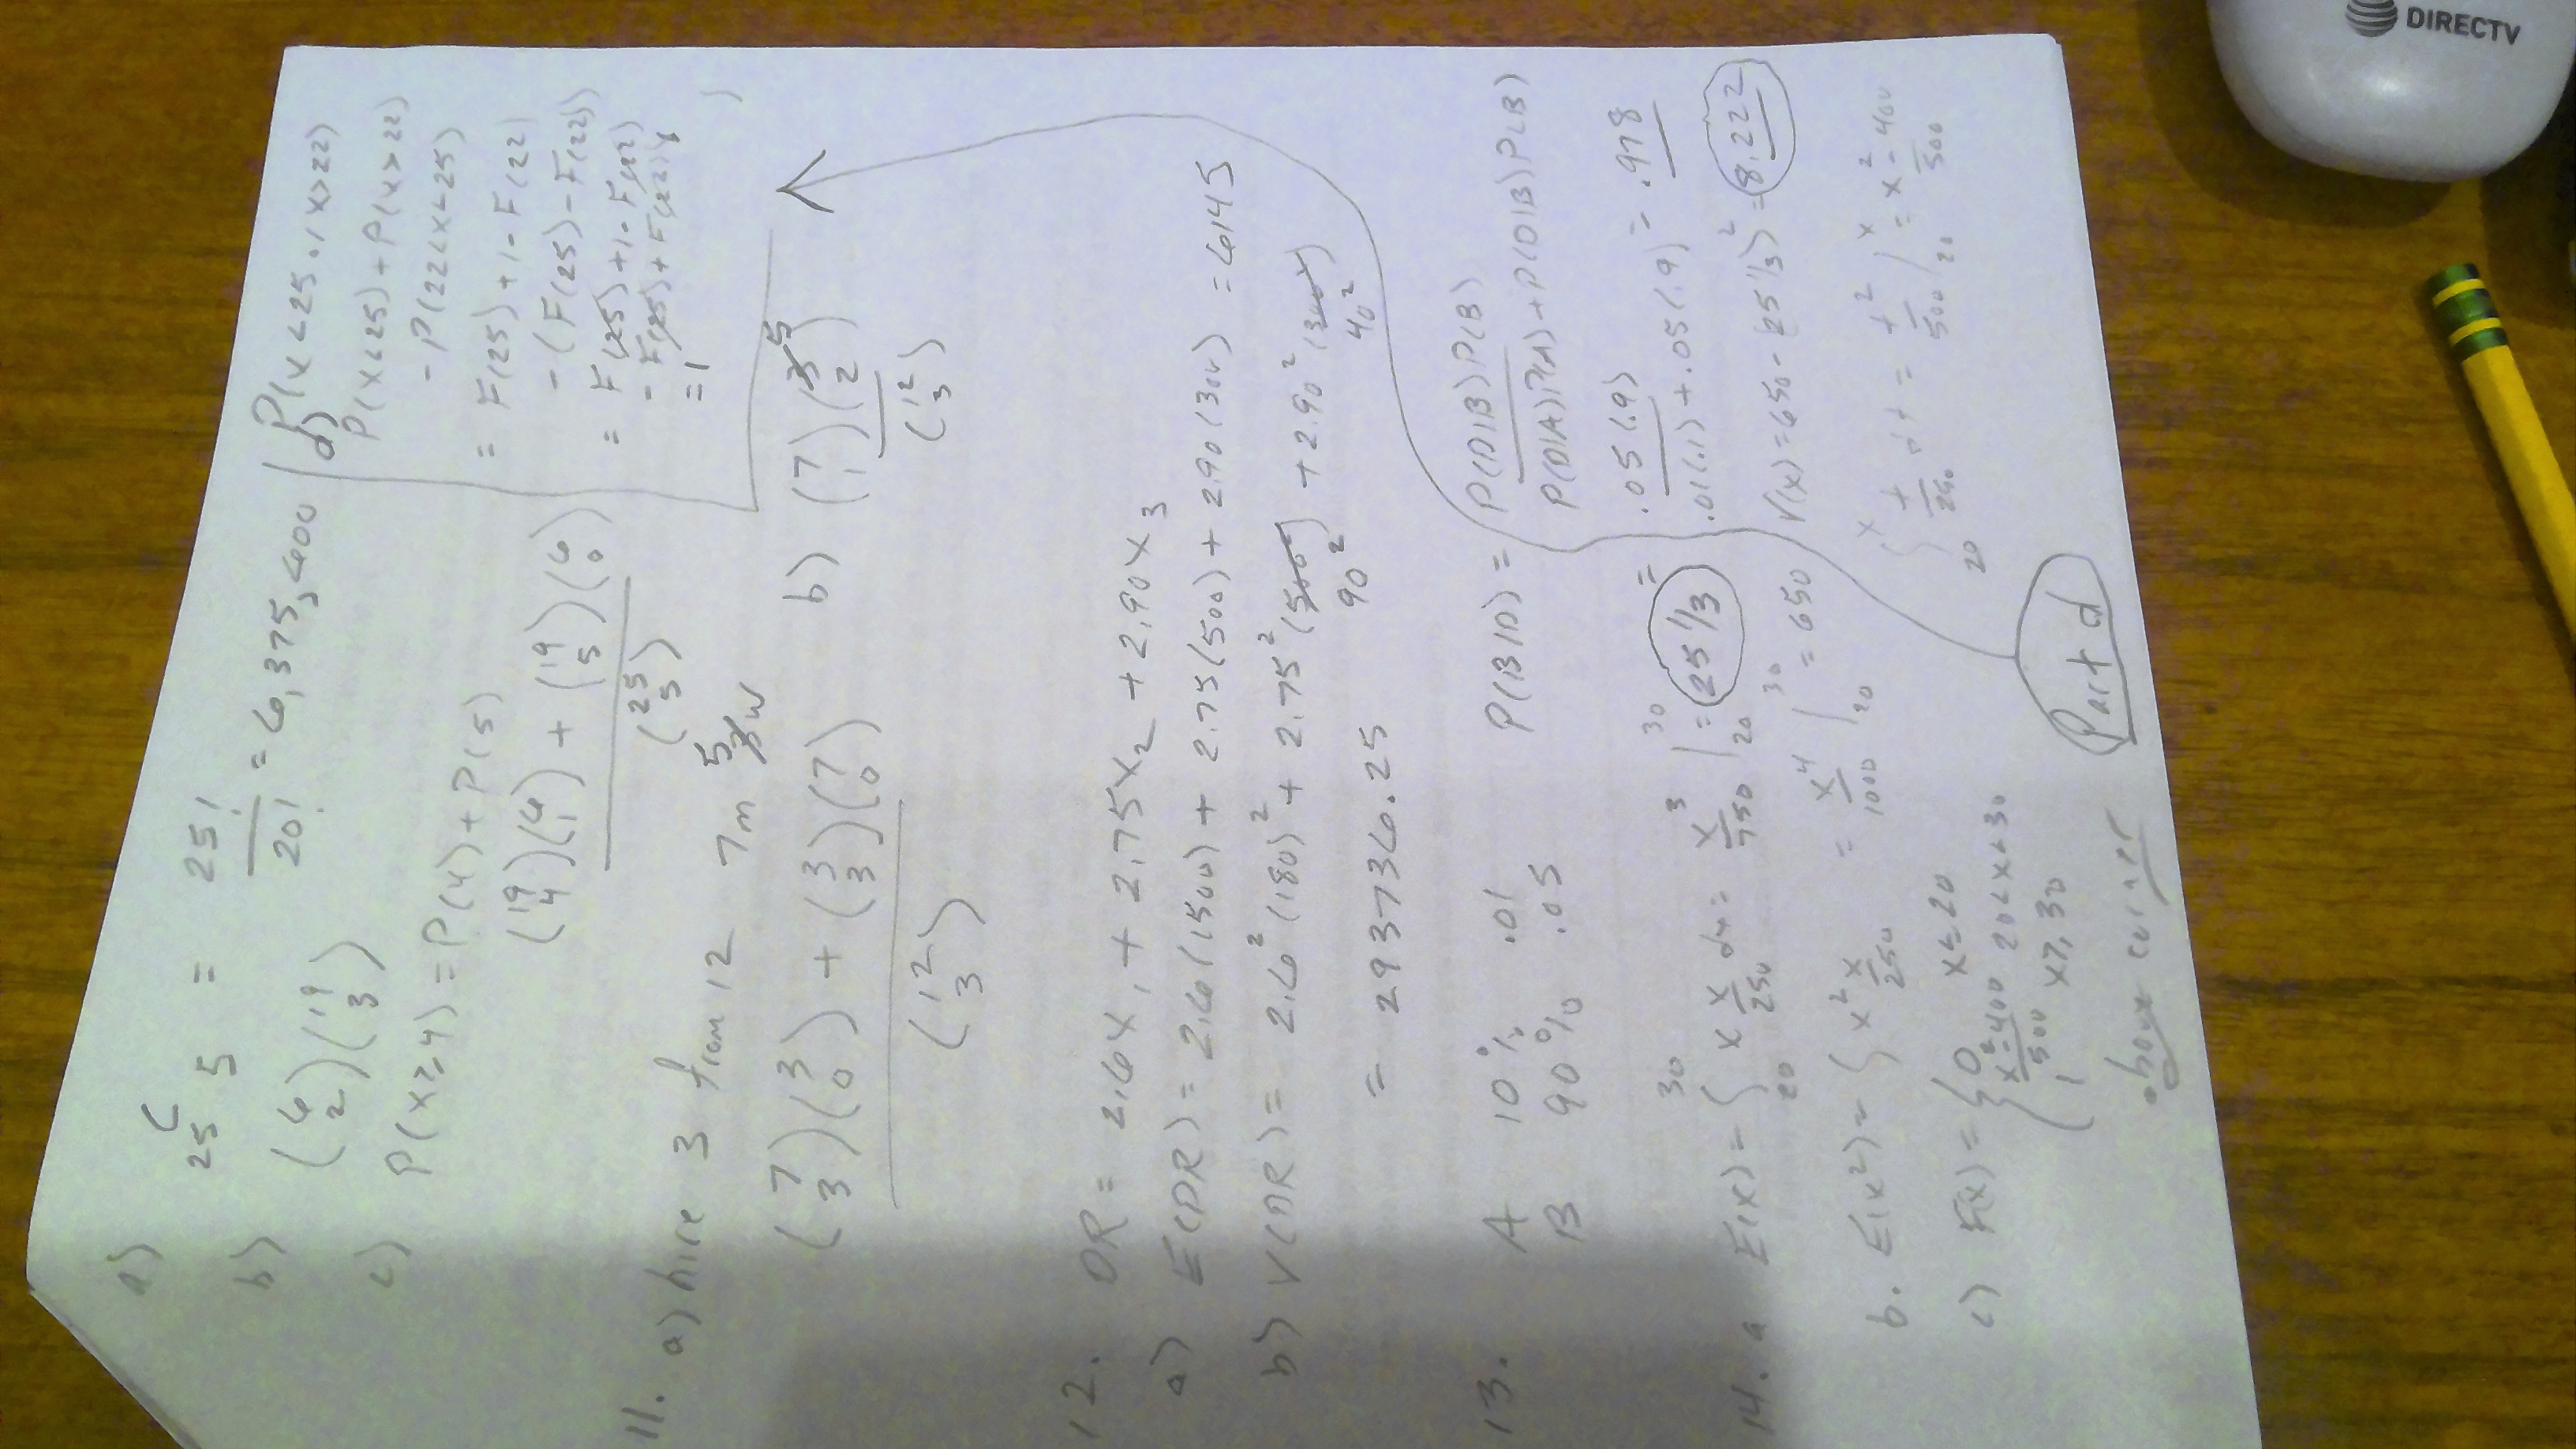 a) 25 C 5 = 25! / 20! = 6,375,600
b) (6 2)(19 3)
c) P(X≥4) = P(4) + P(5)
(19 4)(6 1) + (19 5)(6 0)
(25 5)
P(X<25 or X>22)
d)
P(X<25) + P(X>22)
- P(22<X<25)
= F(25) + 1 - F(22)
- (F(25) - F(22))
= F(25) + 1 - F(22)
- F(25) + F(22)
= 1
11. a) hire 3 from 12 7m 5w
(7 3)(3 0) + (3 3)(7 0)
(12 3)
b) (7 1)(5 2)
(12 3)
12. DR = 2.6X1 + 2.75X2 + 2.90X3
a) E(DR) = 2.6(1500) + 2.75(500) + 2.90(300) = 6145
b) V(DR) = 2.6²(180)² + 2.75²(500²) + 2.90²(300²)
90² 40²
= 293736.25
13. A 10% .01
B 90% .05
P(B|D) = P(D|B)P(B) / P(D|A)P(A) + P(D|B)P(B)
= .05(.9) / .01(.1) + .05(.9) = .978
14. a E(X) = ∫ 20 30 x x/250 dx = x³/750 | 20 30 = 25 1/3
b. E(X²) = ∫ x² x/250 = x⁴/1000 | 20 30 = 650
V(X) = 650 - (25 1/3)² = 8.222
c) F(X) = { 0 x≤20
x²-400/500 20<x<30
1 x≥30
∫ 20 x t/250 dt = t²/500 | 20 x = x²-400/500
above corner
Part d
DIRECTV